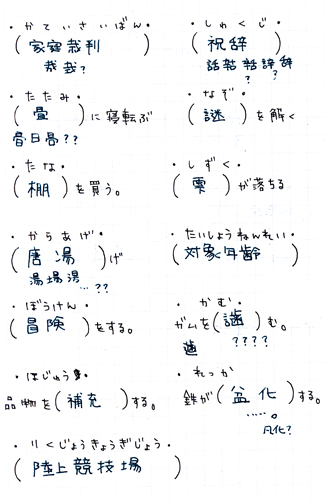 ・かていさいばん・
(家宴裁判)
哉哉?
・しゅくじ・
(祝辞)
話
辞
? ?
・たたみ・
(畳)に寝転ぶ
畳日畳??
・なぞ・
(謎)を解く
・たな・
(棚)を買う。
・しずく・
(雫)が落ちる
・からあげ・
(唐湯)げ
湯場湯
…??
・たいしょうねんれい・
(対象年齢)
・ぼうけん・
(冒険)をする。
・かむ・
ガムを(歯)む。
歯 ????
・ほじゅう・
品物を(補充)する。
・れっか
鉄が(盆化)する。
……。
凡化?
・りくじょうきょうぎじょう・
(陸上競技場)